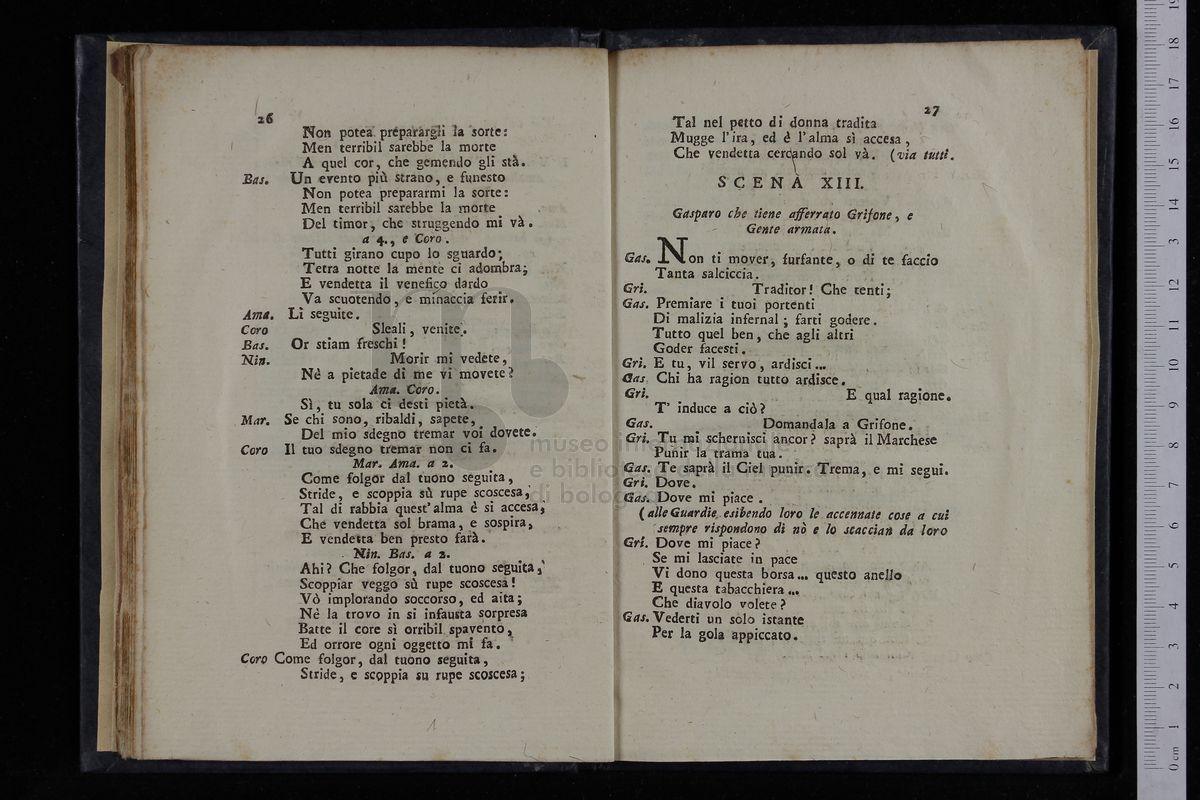 26
Non potea prepararglì la sorte:
Men terribil sarebbe la morte
A quel cor, che gemendo gli stà.
Bas. Un evento più strano, e funesto
Non potea prepararmi la sorte:
Men terribil sarebbe la morte
Del timor, che struggendo mi và.
a 4., e Coro.
Tutti girano cupo lo sguardo;
Tetra notte la mente ci adombra;
E vendetta il venefico dardo
Va scuotendo, e minaccia ferir.
Ama. Li seguite.
Coro Sleali, venite.
Bas. Or stiam freschi!
Nin. Morir mi vedete,
Nè a pietade di me vi movete?
Ama. Coro.
Sì, tu sola ci desti pietà.
Mar. Se chi sono, ribaldi, sapete,
Del mio sdegno tremar voi dovete.
Coro Il tuo sdegno tremar non ci fa.
Mar. Ama. a 2.
Come folgor dal tuono seguita,
Stride, e scoppia sù rupe scoscesa,
Tal di rabbia quest'alma è si accesa,
Che vendetta sol brama, e sospira,
E vendetta ben presto farà.
Nin. Bas. a 2.
Ahi? Che folgor, dal tuono seguita,
Scoppiar veggo sù rupe scoscesa!
Vò implorando soccorso, ed aita;
Nè la trovo in si infausta sorpresa
Batte il core sì orribil spavento,
Ed orrore ogni oggetto mi fa.
Coro Come folgor, dal tuono seguita,
Stride, e scoppia su rupe scoscesa;
1
27
Tal nel petto di donna tradita
Mugge l'ira, ed è l'alma sì accesa,
Che vendetta cercando sol và. (via tutti.
SCENA XIII.
Gasparo che tiene afferrato Grifone, e
Gente armata.
Gas. Non ti mover, furfante, o di te faccio
Tanta salciccia.
Gri. Traditor! Che tenti;
Gas. Premiare i tuoi portenti
Di malizia infernal; farti godere.
Tutto quel ben, che agli altri
Goder facesti.
Gri. E tu, vil servo, ardisci...
Gas Chi ha ragion tutto ardisce.
Gri. E qual ragione.
T' induce a ciò?
Gas. Domandala a Grifone.
Gri. Tu mi schernisci ancor? saprà il Marchese
Punir la trama tua.
Gas. Te saprà il Ciel punir. Trema, e mi segui.
Gri. Dove.
Gas. Dove mi piace.
(alle Guardie, esibendo loro le accennate cose a cui
sempre rispondono di nò e lo scaccian da loro
Gri. Dove mi piace?
Se mi lasciate in pace
Vi dono questa borsa... questo anello
E questa tabacchiera...
Che diavolo volete?
Gas. Vederti un solo istante
Per la gola appiccato.
museo internazionale
e biblioteca della musica
di bologna
0 cm 1 2 3 4 5 6 7 8 9 10 11 12 13 14 15 16 17 18 19